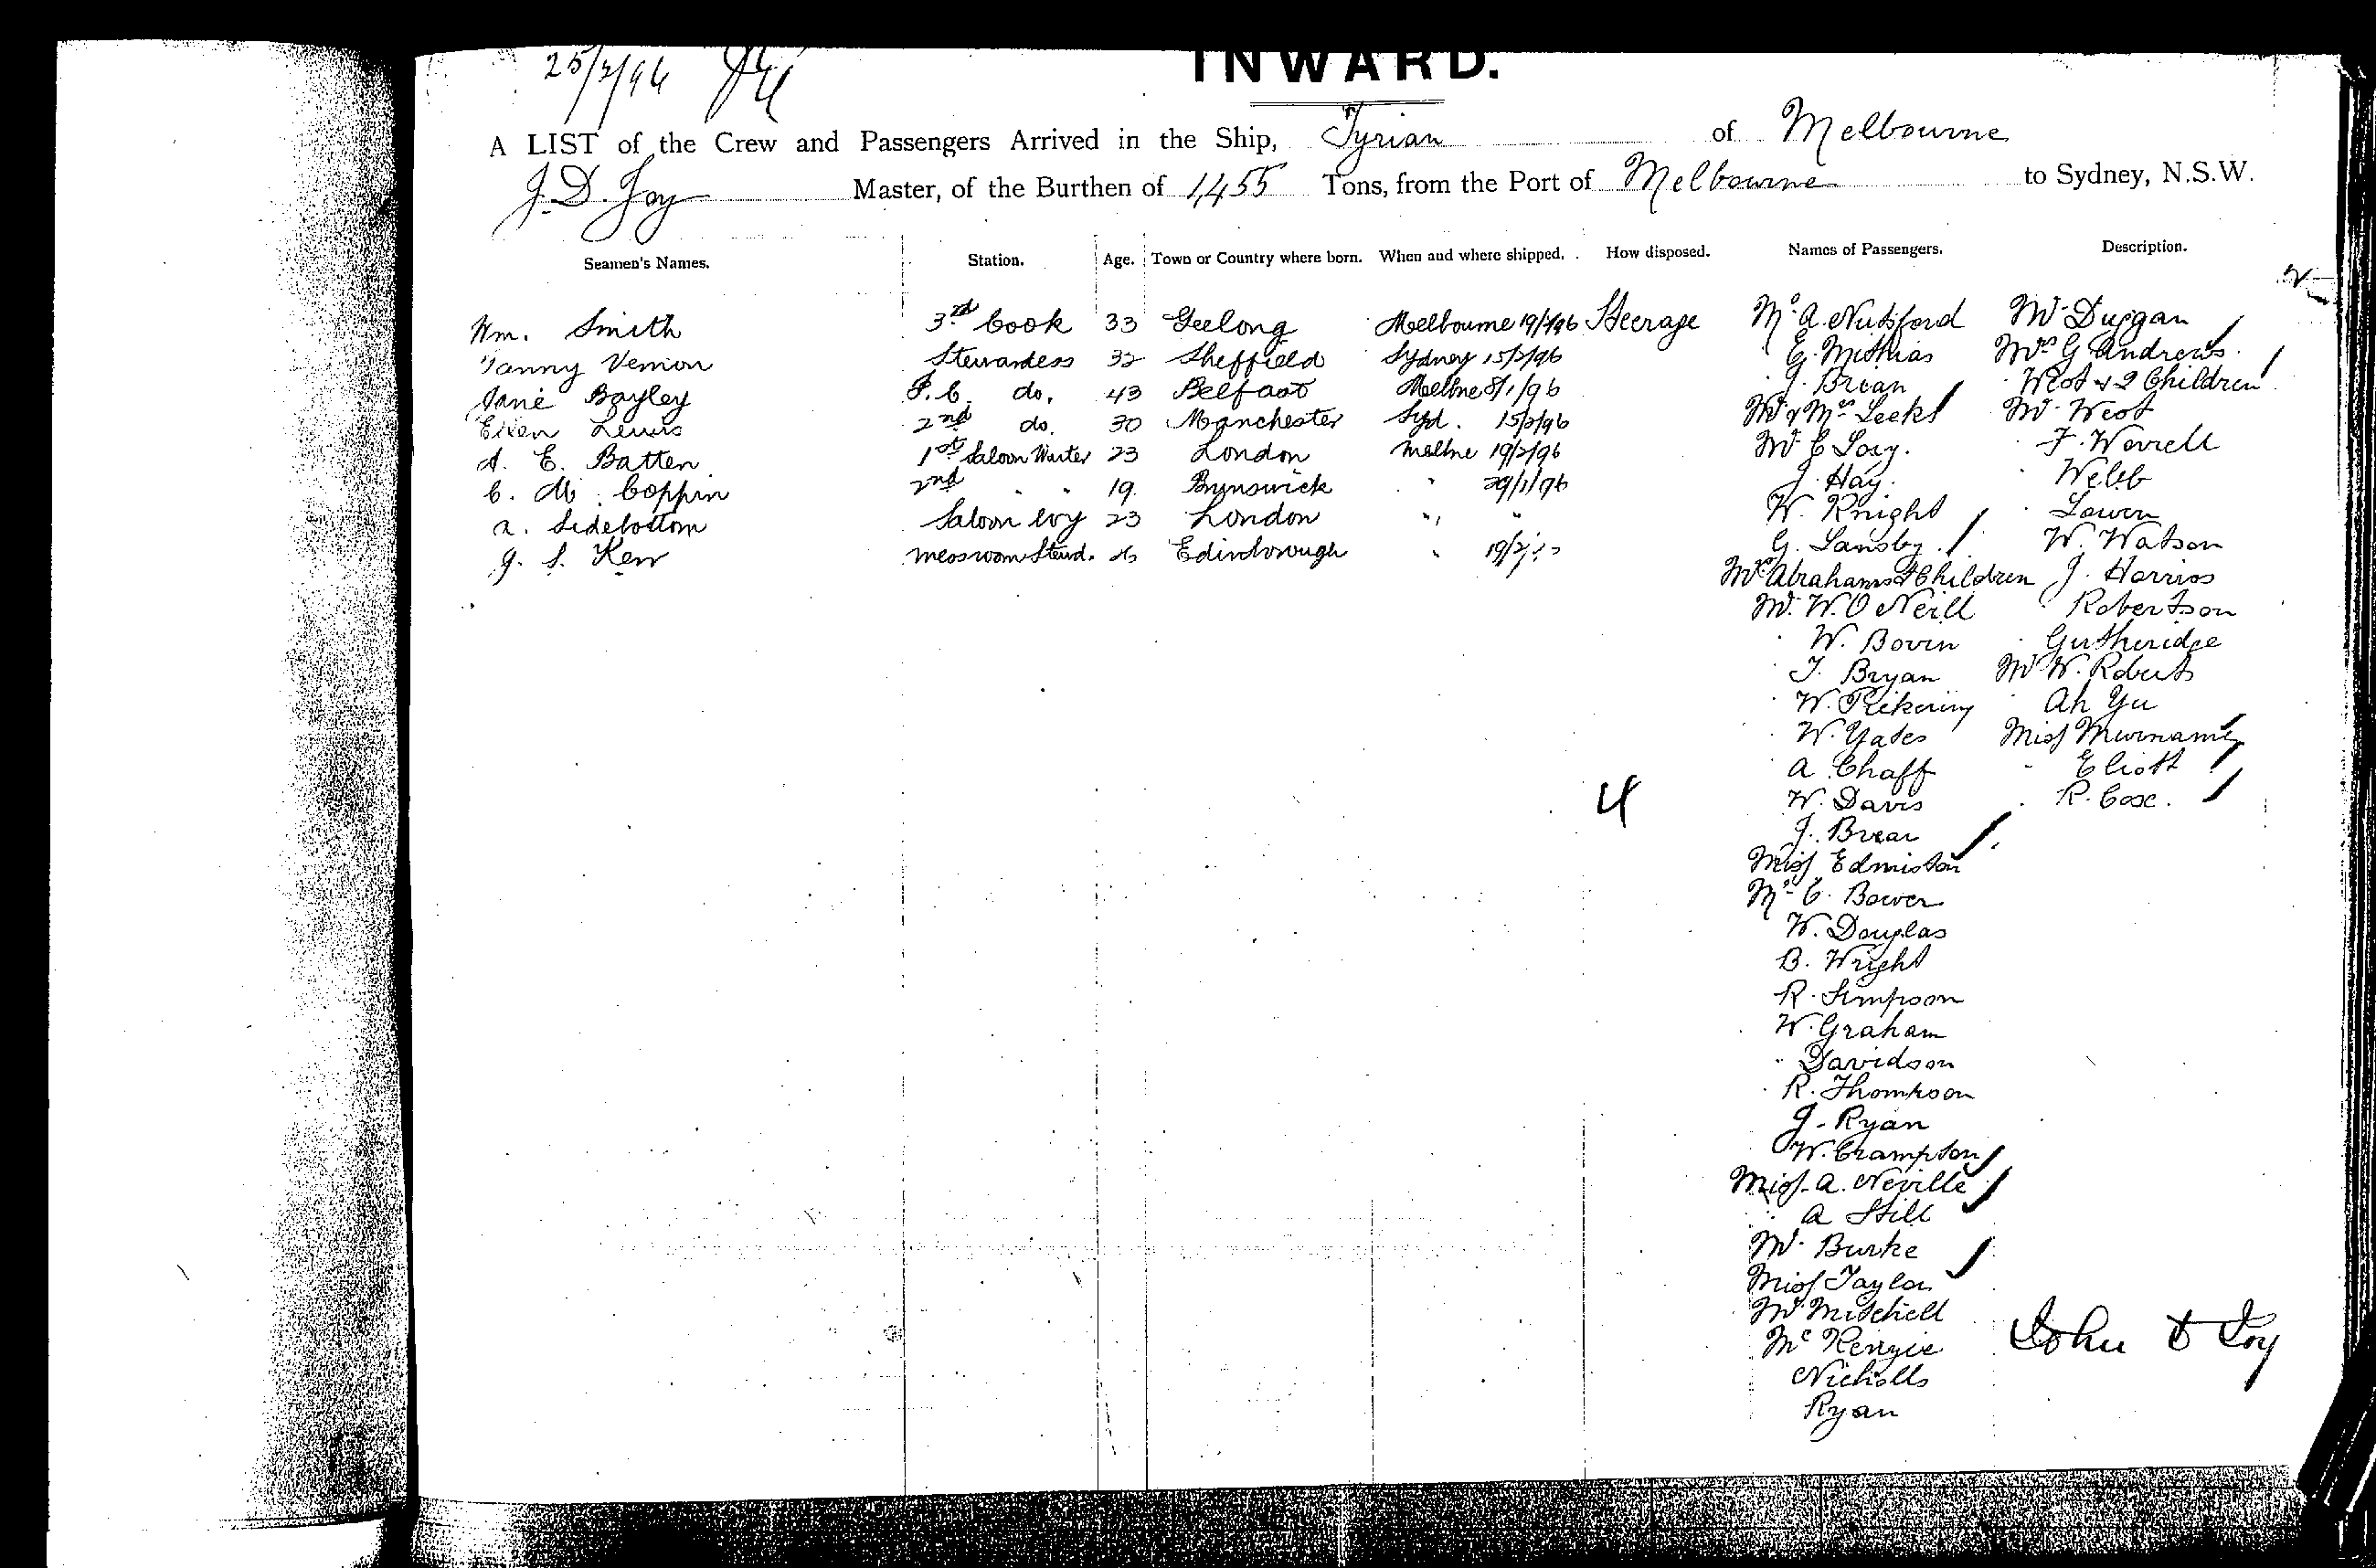 25/2/96
INWARD.
A LIST of the Crew and Passengers Arrived in the Ship, Tyrian of Melbourne
J. D. Joy Master, of the Burthen of 1,455 Tons, from the Port of Melbourne to Sydney, N.S.W.
Seamen's Names. Station. Age. Town or Country where born. When and where shipped. How disposed. Names of Passengers. Description.
Wm. Smith 3rd Cook 33 Geelong Melbourne 19/2/96 Steerage Mr A. Nutsford Mr Duggan
Fanny Vernon Stewardess 32 Sheffield Sydney 15/2/96 E. Mathias Mrs G Andrews
Jane Bayley F.C. do. 43 Belfast Melbne 8/1/96 J. Brean West & 2 Children
Ellen Lewis 2nd do. 30 Manchester Syd. 15/2/96 Mr & Mrs Leeks Mr West
A. E. Batten 1st Saloon Waiter 23 London Melbne 19/2/96 Mr C Lory. F. Worrell
C. M. Coppin 2nd " " 19 Brunswick " 29/1/96 J. Hay. Webb
A. Sidebottom Saloon Boy 23 London " " W. Knight Lawen
G. S. Kerr Messroom Stewd. Edinborough " 19/2 G. Lansby. W. Watson
Mrs Abrahams & Children J. Harriss
Mr. W. O Neill Robertson
W. Bovin Gutheridge
T. Bryan Mr W. Roberts
W. Pikering Ah Yu
W. Yates Miss Murnane
A Chaff " Eliott
4 W. Davis R. Cox.
J. Brear
Miss Edmiston
Mr C. Bower
W. Douglas
B. Wright
R. Simpson
W. Graham
" Davidson
R. Thompson
J. Ryan
W. Crampton
Miss A. Neville
A Still
Mr. Burke
Miss Taylor
Mr Mitchell
McKenzie John D Joy
Nicholls
Ryan